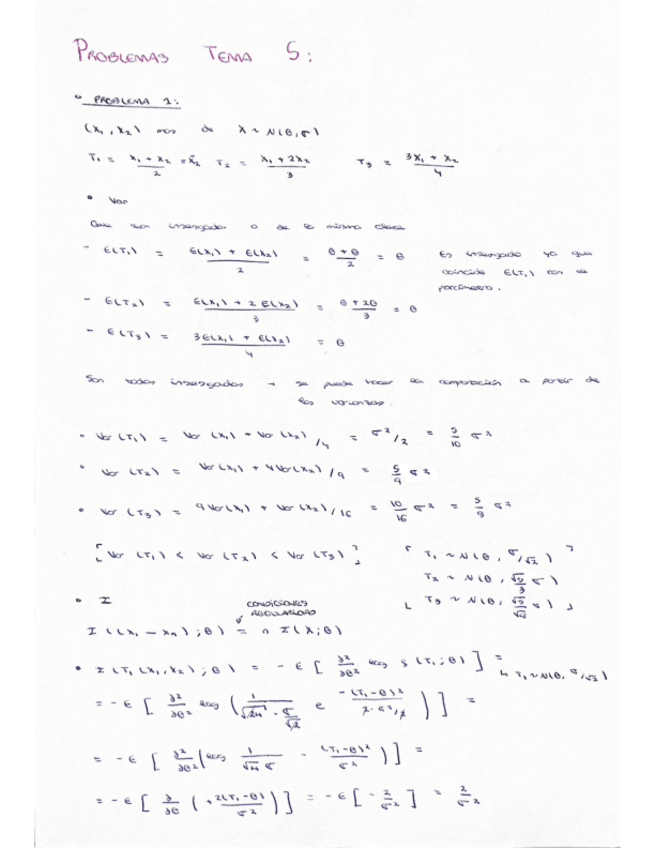 PROBLEMAS TEMA 5:
• PROBLEMA 1:
(X₁, X₂) mas de X ~ N(θ, σ)
T₁ = (X₁ + X₂)/2 = X̄₂   T₂ = (X₁ + 2X₂)/3   T₃ = (3X₁ + X₂)/4
• Var
Que son insesgados o de la misma clase
- E(T₁) = (E(X₁) + E(X₂))/2 = (θ + θ)/2 = θ   Es insesgado ya que
coincide E(T₁) con el
parámetro.
- E(T₂) = (E(X₁) + 2E(X₂))/3 = (θ + 2θ)/3 = θ
- E(T₃) = (3E(X₁) + E(X₂))/4 = θ
Son todos insesgados → se puede hacer la comparación a partir de
las varianzas.
• Var(T₁) = Var(X₁) + Var(X₂)/4 = σ²/2 = 5/10 σ²
• Var(T₂) = Var(X₁) + 4Var(X₂)/9 = 5/9 σ²
• Var(T₃) = 9Var(X₁) + Var(X₂)/16 = 10/16 σ² = 5/8 σ²
[Var(T₁) < Var(T₂) < Var(T₃)]   [T₁ ~ N(θ, σ/√2)
T₂ ~ N(θ, √5/3 σ)
T₃ ~ N(θ, √5/√8 σ)]
• I
CONDICIONES
REGULARIDAD
I((X₁ – Xₙ); θ) = n I(X; θ)
• I(T₁(X₁, X₂); θ) = -E[∂²/∂θ² log f(T₁; θ)] =
↳ T₁ ~ N(θ, σ/√2)
= -E[∂²/∂θ² log(1/(√2π · σ/√2) e^(-(T₁-θ)²/(2·σ²/2)))] =
= -E[∂²/∂θ² (log 1/(√π σ) - (T₁-θ)²/σ²)] =
= -E[∂/∂θ (+2(T₁-θ)/σ²)] = -E[-2/σ²] = 2/σ²